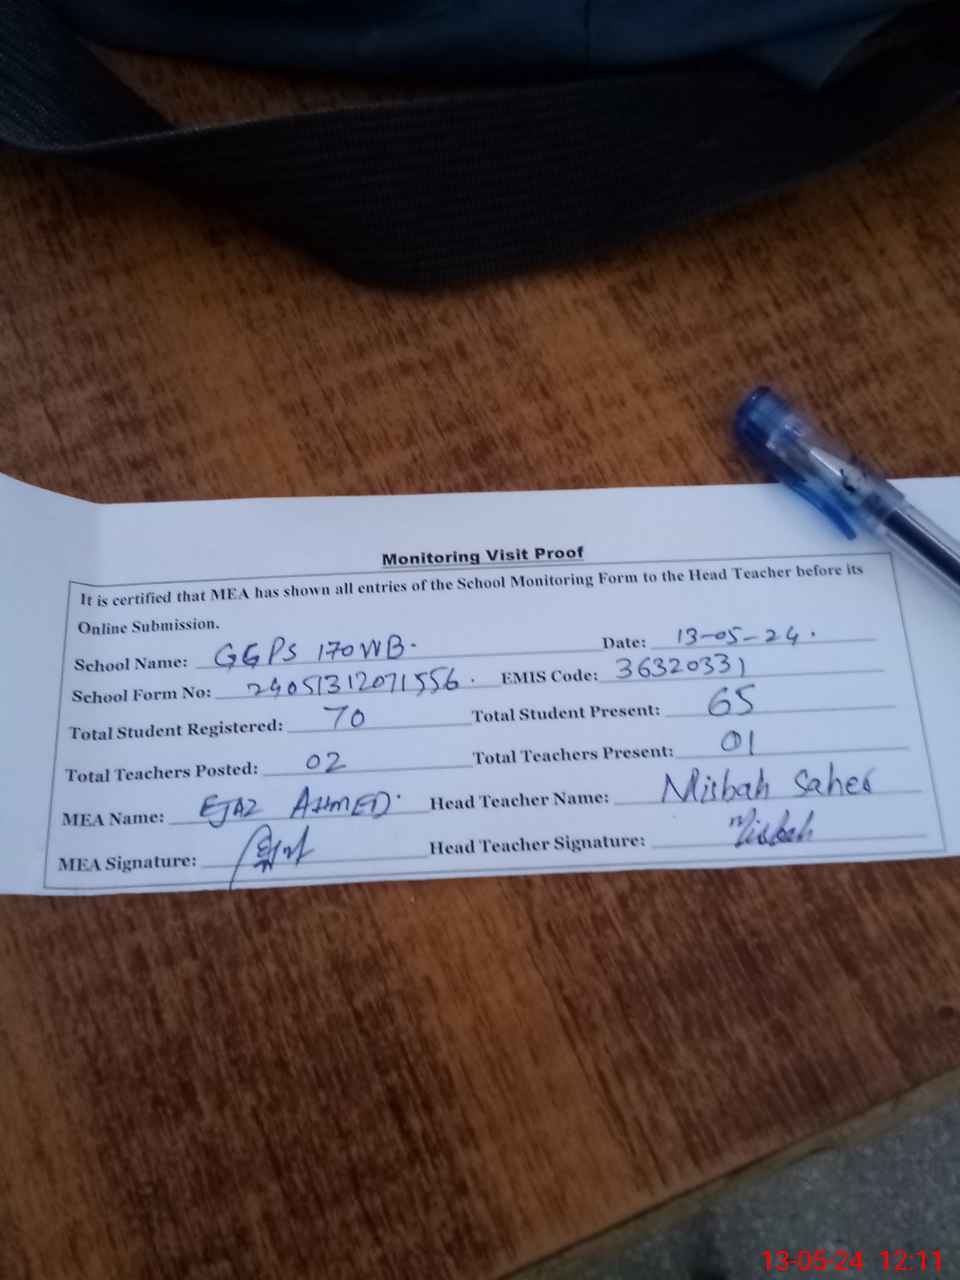 Monitoring Visit Proof
It is certified that MEA has shown all entries of the School Monitoring Form to the Head Teacher before its
Online Submission.
School Name: GGPS 170 WB. Date: 13-05-24.
School Form No: 24051312071556. EMIS Code: 36320331
Total Student Registered: 70 Total Student Present: 65
Total Teachers Posted: 02 Total Teachers Present: 01
MEA Name: EJAZ AHMED. Head Teacher Name: Misbah Saher
MEA Signature: Head Teacher Signature: Misbah
13-05-24 12:11